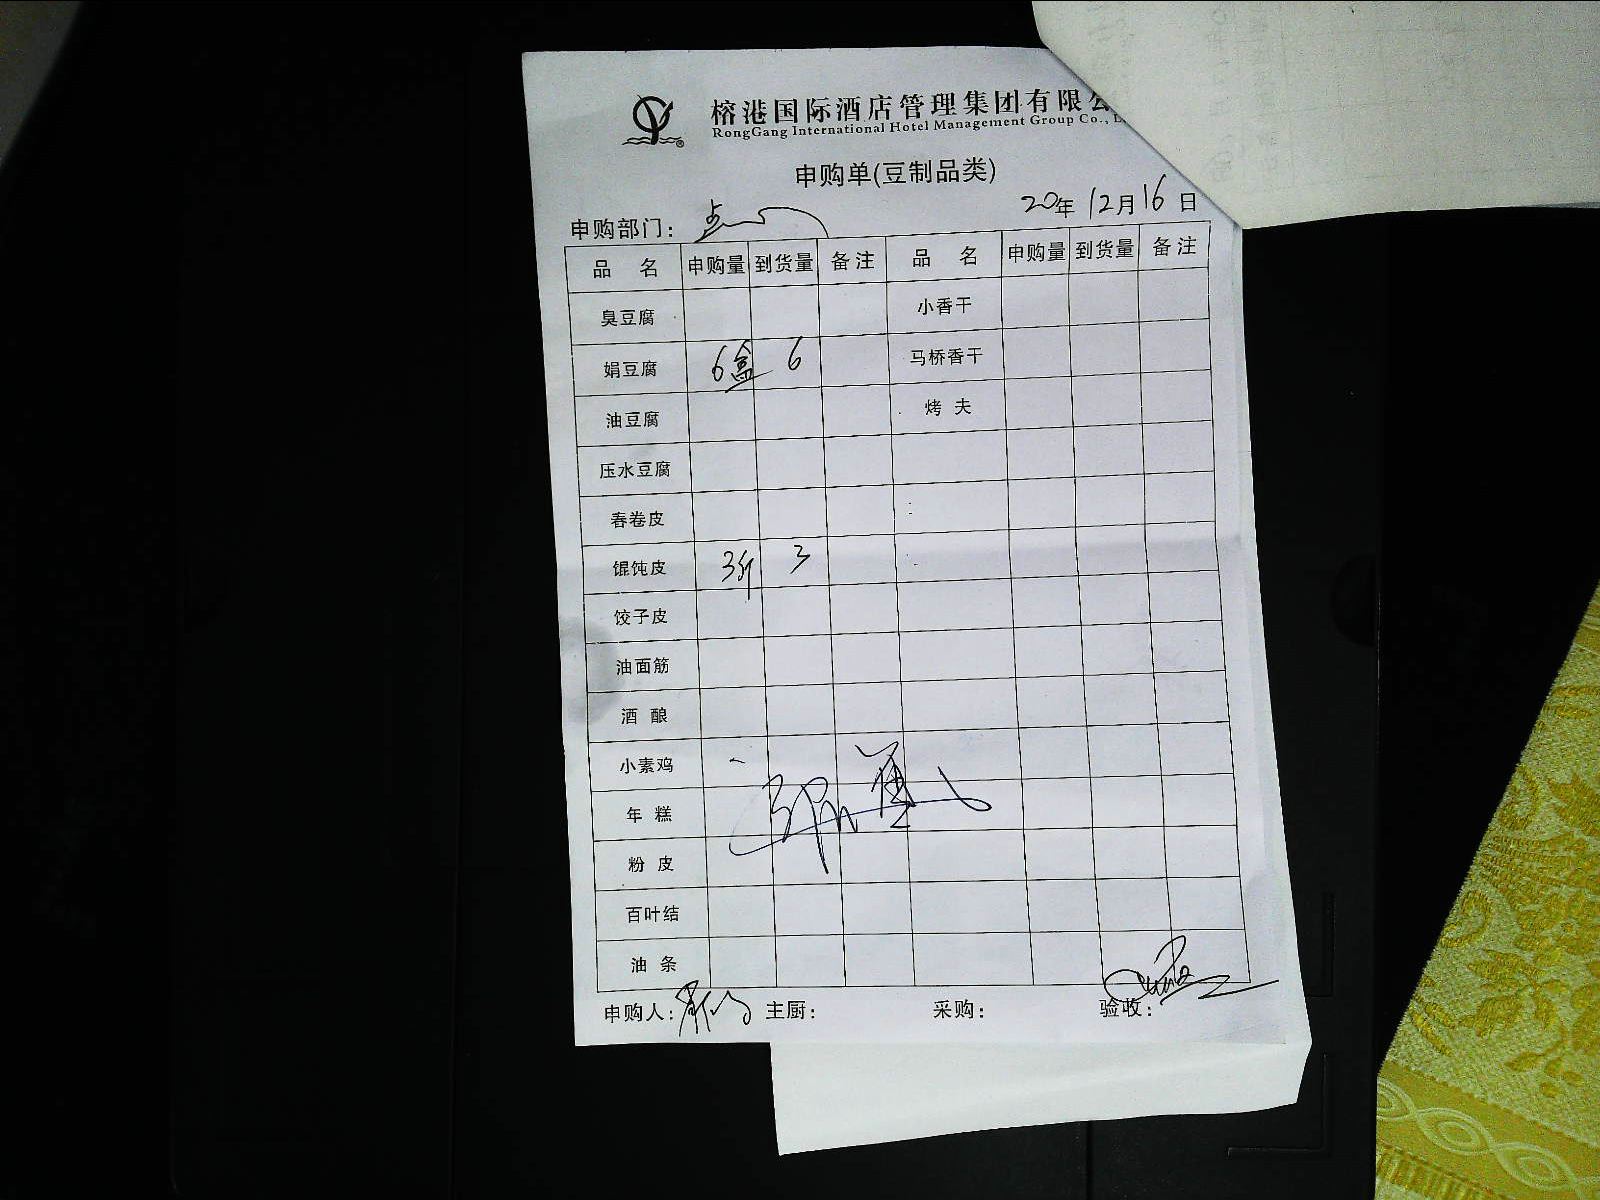 榕港国际酒店管理集团有限公
RongGang International Hotel Management Group Co.,
申购单(豆制品类)
20年 12月16日
申购部门: 点
品 名 申购量 到货量 备注 品 名 申购量 到货量 备注
臭豆腐 小香干
娟豆腐 6盒 6 马桥香干
油豆腐 烤 夫
压水豆腐
春卷皮
馄饨皮 3斤 3
饺子皮
油面筋
酒 酿
小素鸡
年 糕
粉 皮
百叶结
油 条
申购人: 主厨: 采购: 验收: